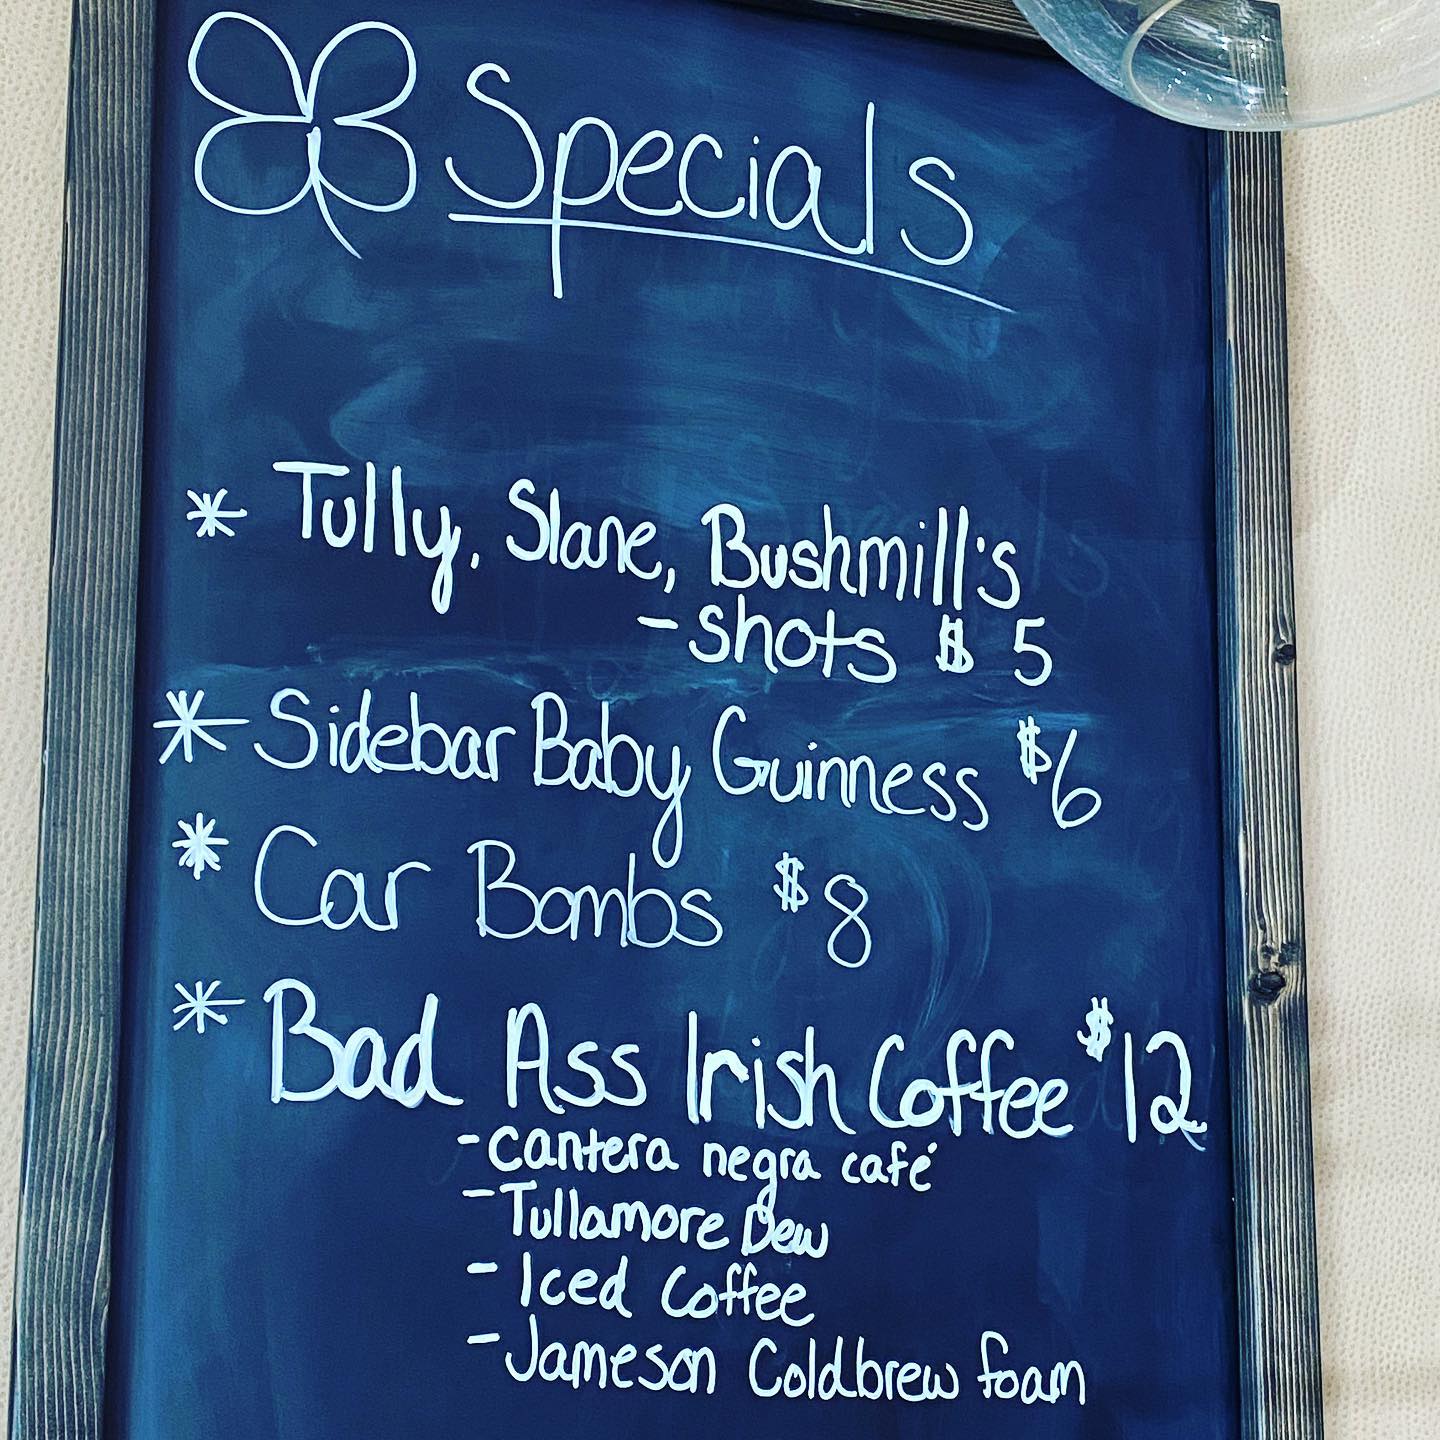 Specials
* Tully, Slane, Bushmill's
- shots $ 5
* Sidebar Baby Guinness $6
* Car Bombs $8
* Bad Ass Irish Coffee $12
- cantera negra café
- Tullamore Dew
- Iced Coffee
- Jameson Coldbrew foam